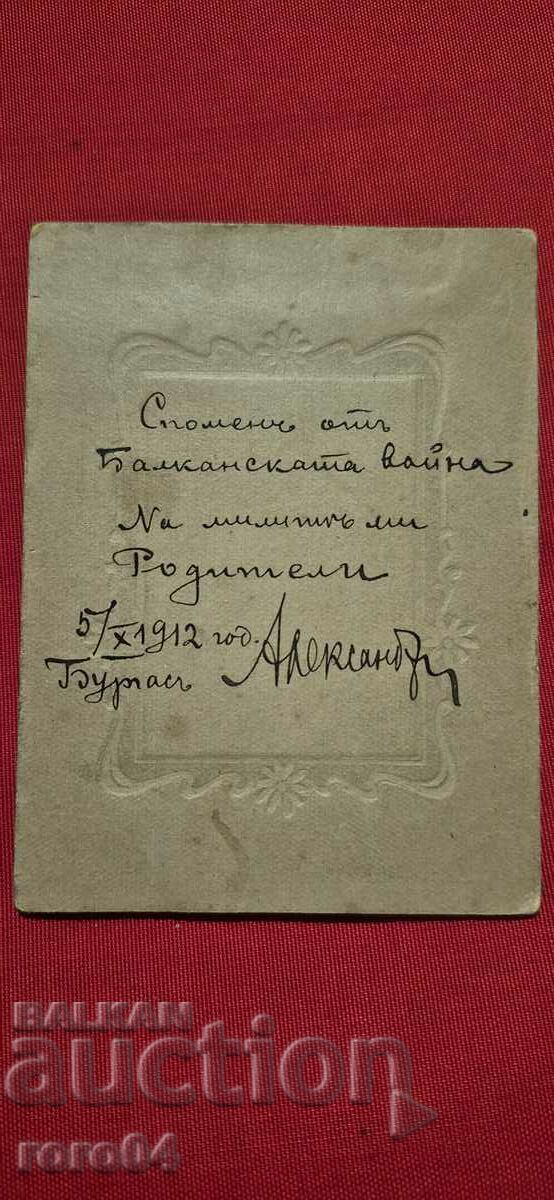 Споменъ отъ
Балканската война
На милитѣ ми
Родители
5/X 1912 год.
Бургасъ Александъръ
BALKAN
auction
roro04